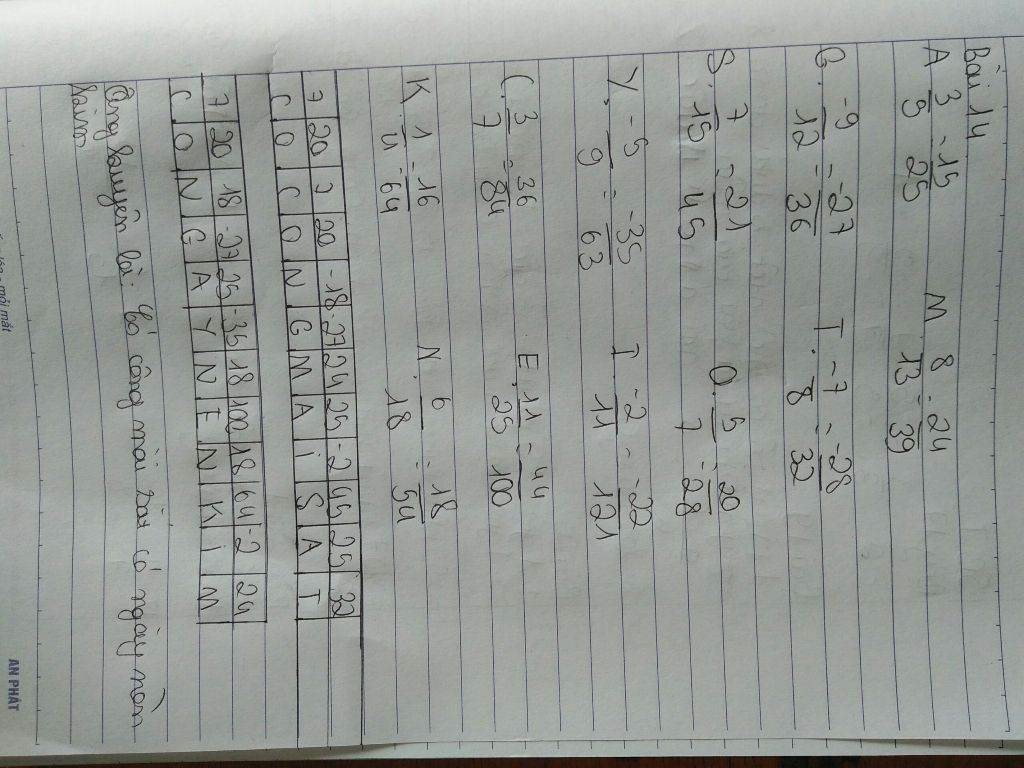 Bài 14
A 3/5 = 15/25 M 8/13 = 24/39
G. -9/12 = -27/36 T. -7/8 = -28/32
S. 7/15 = 21/45 O. 5/7 = 20/28
Y. -5/9 = -35/63 I -2/11 = -22/121
C. 3/7 = 36/84 E. 11/25 = 44/100
K. 1/4 = 16/64 N. 6/18 = 18/54
7 20 7 20 -18 -27 24 25 -2 45 25 32
C O C O N G M A i S A T
7 20 18 -27 25 -35 18 100 18 64 -2 24
C O N G A Y N E N K i M
có công mài sắt có ngày nên
kim
AN PHÁT